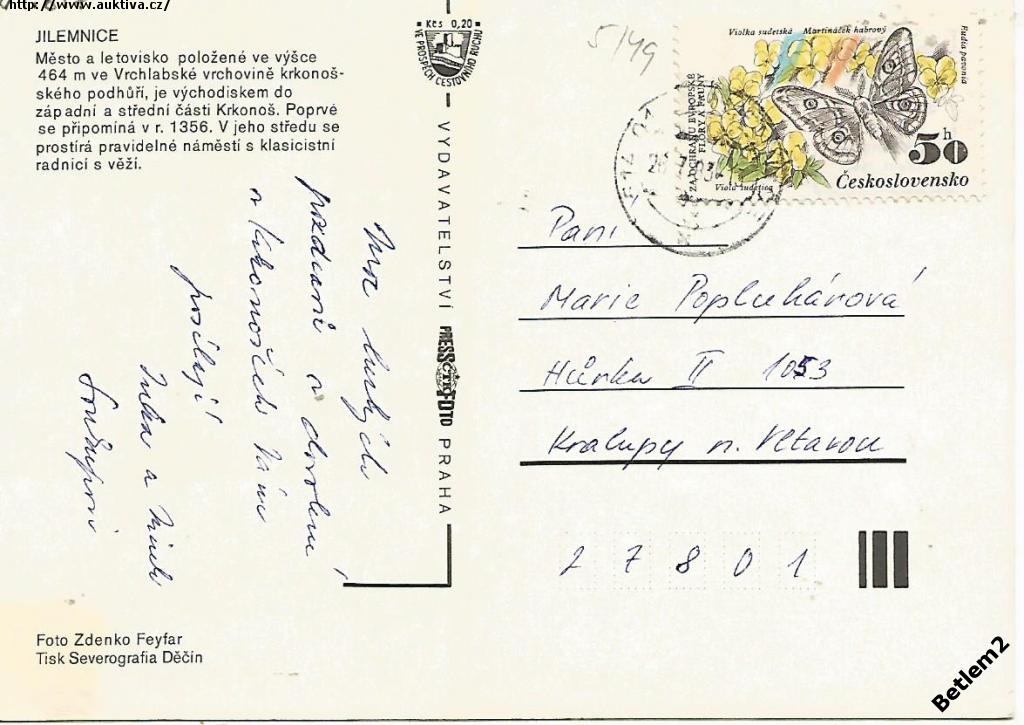 http://www.auktiva.cz/
JILEMNICE
Město a letovisko položené ve výšce
464 m ve Vrchlabské vrchovině krkonoš-
ského podhůří, je východiskem do
západní a střední části Krkonoš. Poprvé
se připomíná v r. 1356. V jeho středu se
prostírá pravidelné náměstí s klasicistní
radnicí s věží.
Kčs 0,20
VE PROSPĚCH CESTOVNÍHO RUCHU
VYDAVATELSTVÍ PRESSFOTO PRAHA
ČTK
5/49
Violka sudetská Martináček habrový
Eudia pavonia
ZA OCHRANU EVROPSKÉ
FLÓRY A FAUNY
Viola sudetica
50 h
Československo
514 01
Mnoho
pozdravů z dovolené
v Krkonoších Vám
posílají
a
Paní
Marie Popluhárová
Hůrka II 1053
Kralupy n. Vltavou
27801
Foto Zdenko Feyfar
Tisk Severografia Děčín
Betlem2